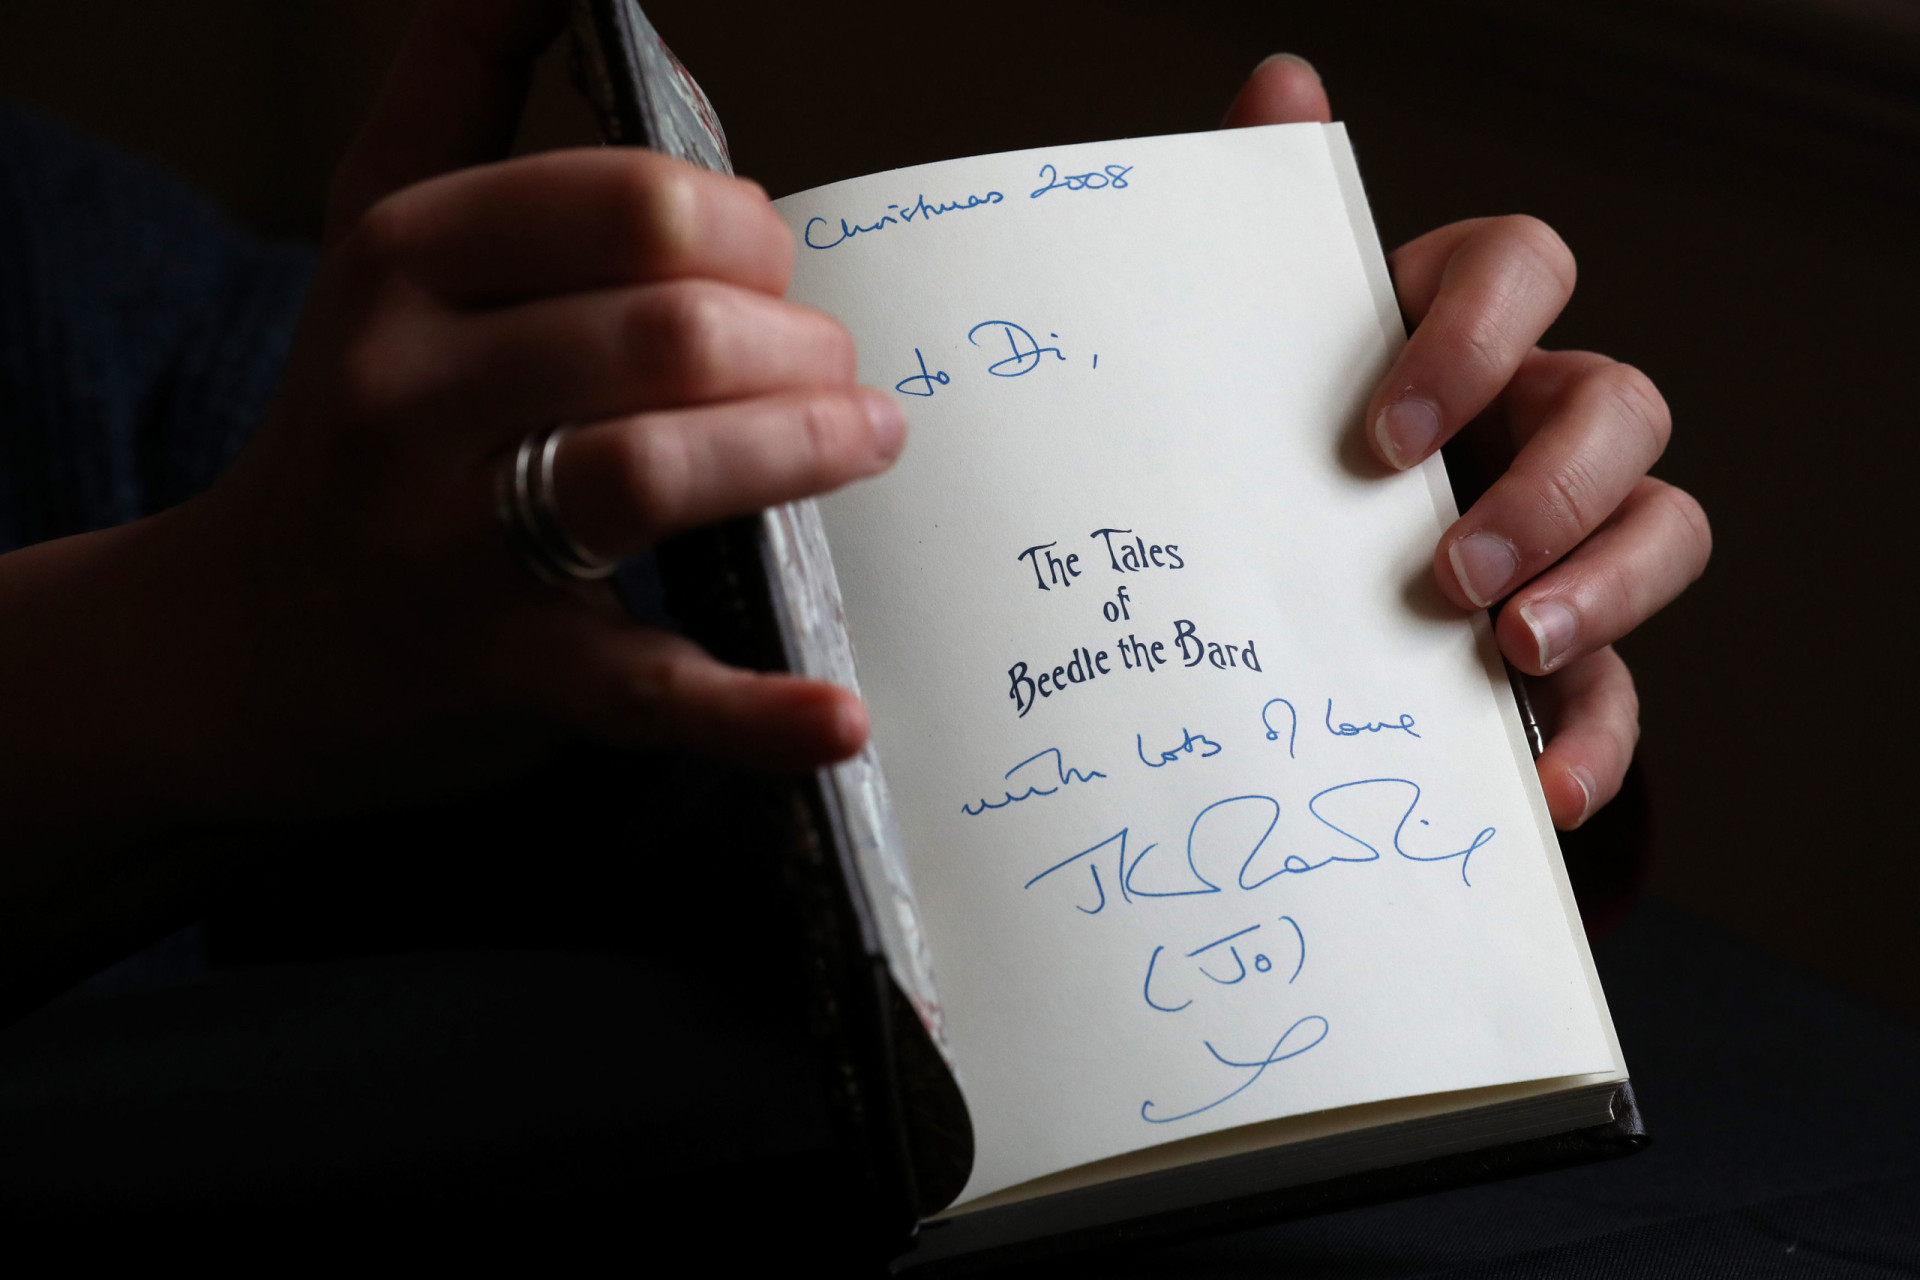 Christmas 2008
to Di,
The Tales
of
Beedle the Bard
with lots of love
JKRowling
(Jo)
x